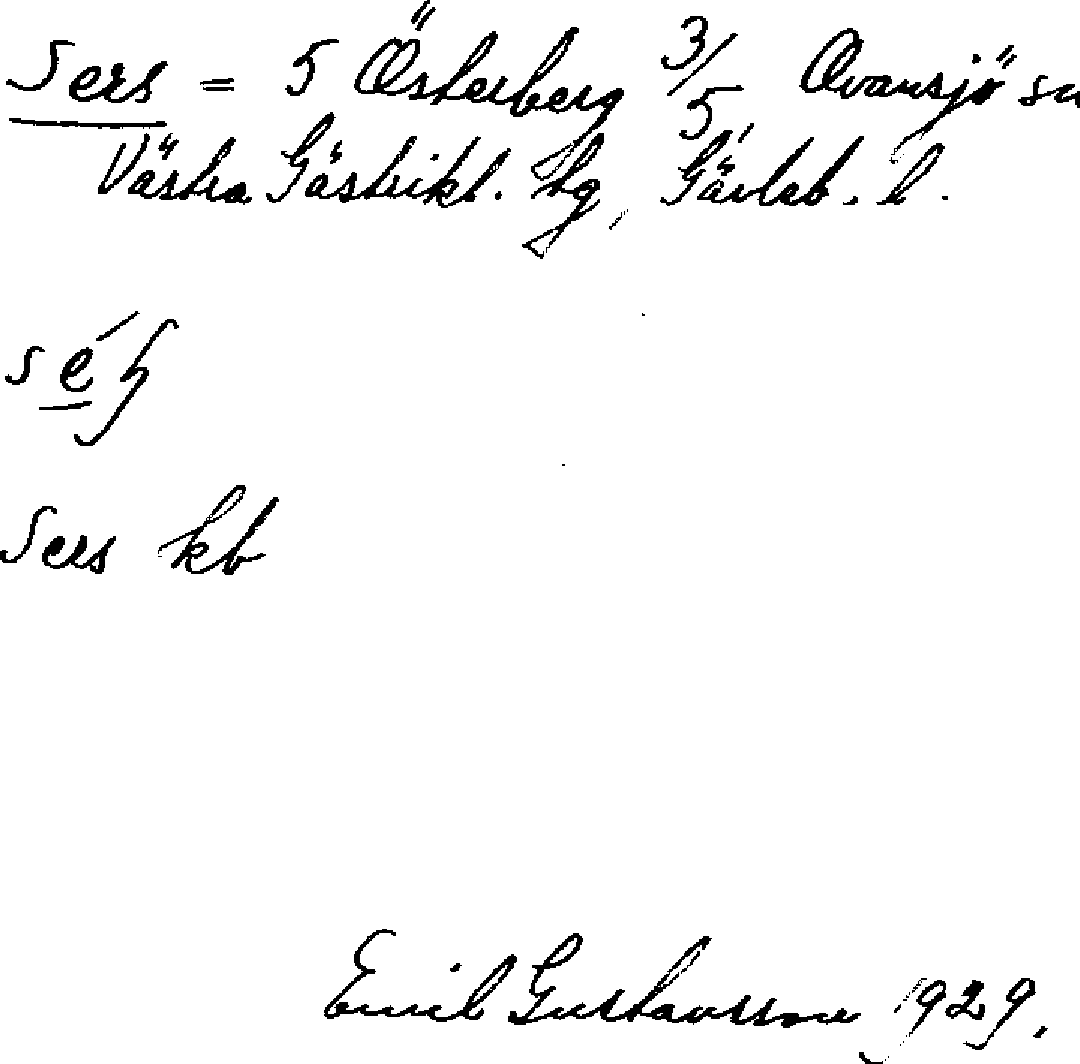 Sers = 5 Österberg 3/5 Ovansjö sn
Västra Gästrikl. tg, Gävleb. l.
Sers kb
Emil Gustavsson 1929.